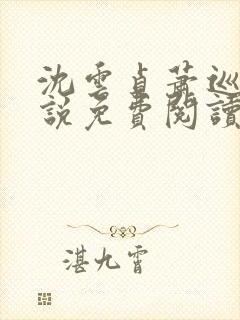 沈雲貞蕭巡
說免費閱讀
湛九霄